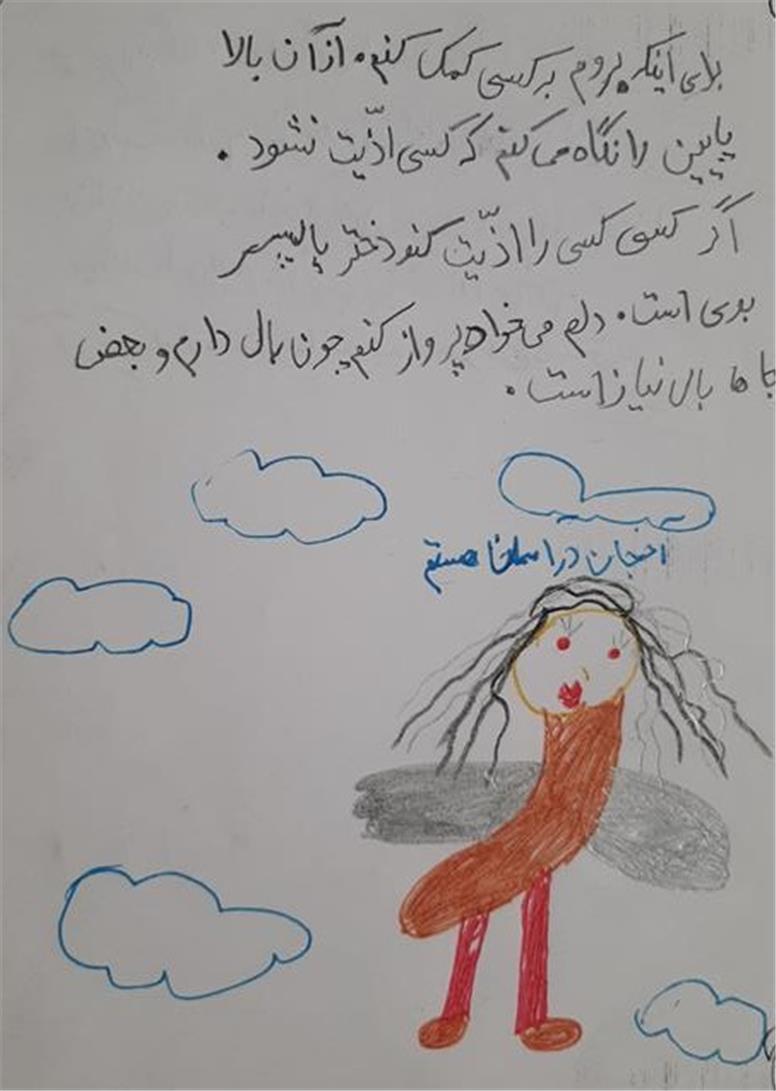 برای اینکه بروم به کسی کمک کنم. از آن بالا
پایین را نگاه می کنم که کسی اذّیت نشود.
اگر کسی کسی را اذّیت کند دختر یا پسر
بدی است. دلم می خواد پرواز کنم چون بال دارم و بعضی
جا ها بال نیاز است.
در اسمانا هستم